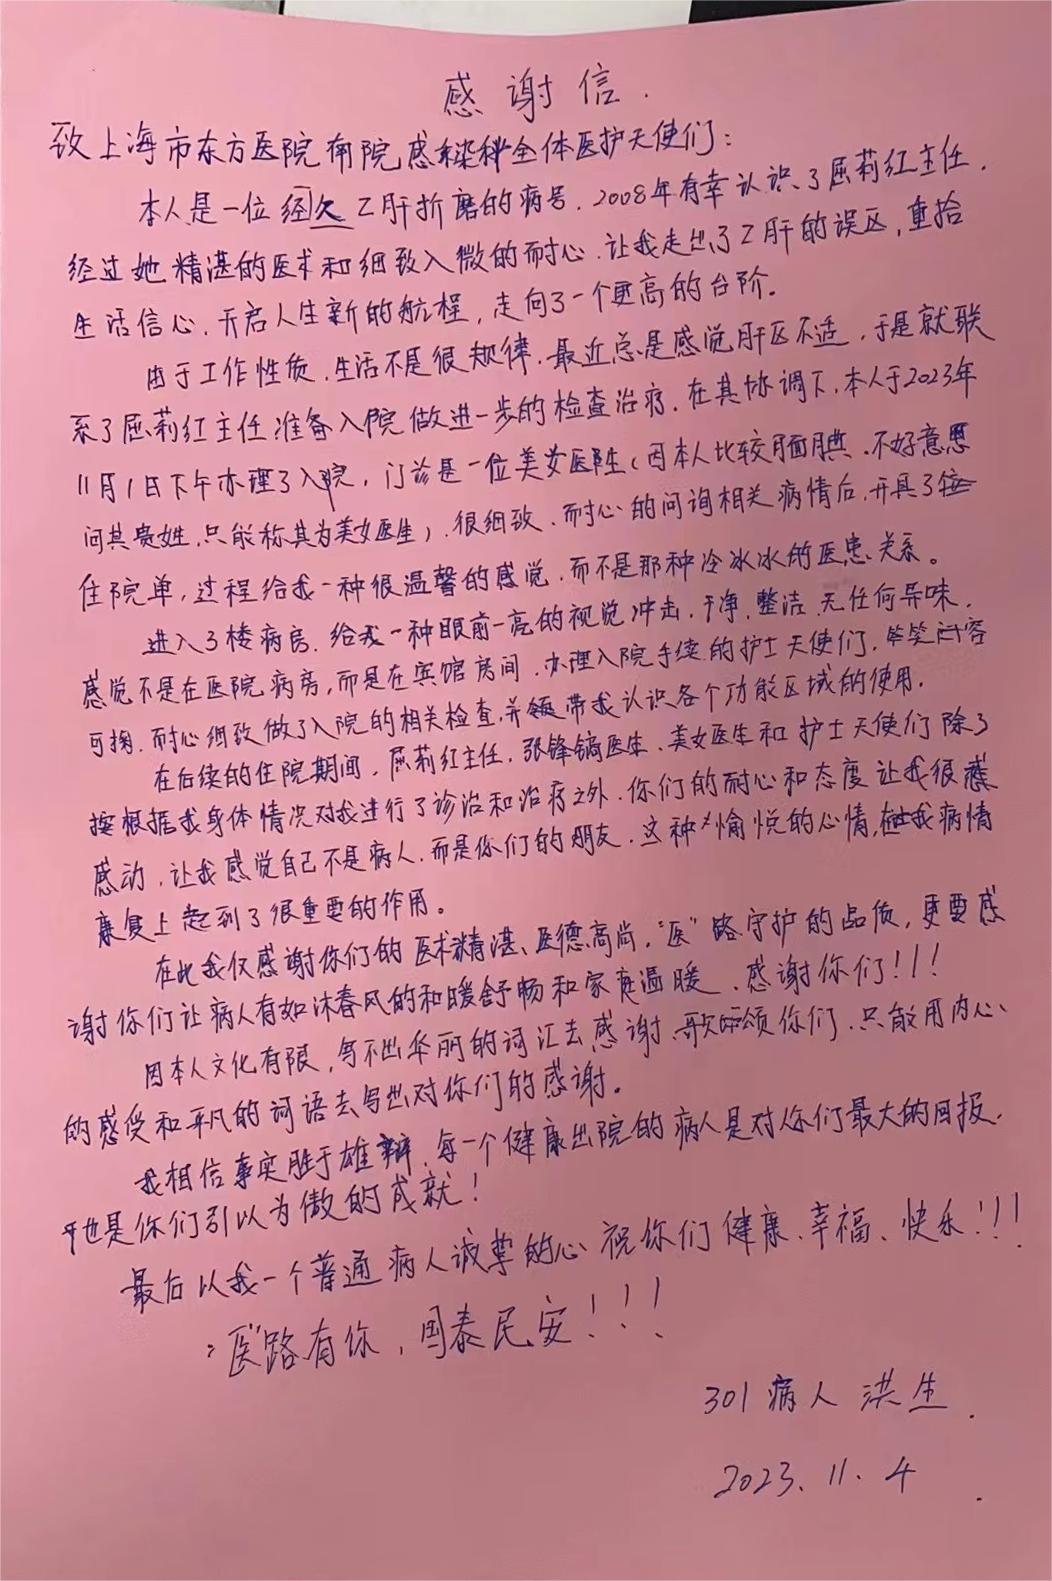 感谢信.
致上海市东方医院南院感染科全体医护天使们：
本人是一位经久乙肝折磨的病号，2008年有幸认识了屈莉红主任，
经过她精湛的医术和细致入微的耐心，让我走出了乙肝的误区，重拾
生活信心，开启人生新的航程，走向了一个更高的台阶。
由于工作性质，生活不是很规律，最近总是感觉肝区不适，于是就联
系了屈莉红主任准备入院做进一步的检查治疗，在其协调下，本人于2023年
11月1日下午办理了入院，门诊是一位美女医生（因本人比较腼腆，不好意思
问其贵姓，只能称其为美女医生），很细致、耐心的问询相关病情后，开具了
住院单，过程给我一种很温馨的感觉，而不是那种冷冰冰的医患关系。
进入3楼病房，给我一种眼前一亮的视觉冲击，干净，整洁，无任何异味，
感觉不是在医院病房，而是在宾馆房间，办理入院手续的护士天使们，笑容
可掬，耐心细致做了入院的相关检查，并带我认识各个功能区域的使用.
在后续的住院期间，屈莉红主任，张锋镝医生、美女医生和护士天使们除了
根据我身体情况对我进行了诊治和治疗之外，你们的耐心和态度让我很
感动，让我感觉自己不是病人，而是你们的朋友，这种愉悦的心情，在我病情
康复上起到了很重要的作用。
在此我仅感谢你们的医术精湛、医德高尚，“医”路守护的品质，更要感
谢你们让病人有如沐春风的和暖舒畅和家庭温暖，感谢你们！！！
因本人文化有限，写不出华丽的词汇去感谢、歌颂你们，只能用内心
的感受和平凡的词语去写出对你们的感谢。
我相信事实胜于雄辩，每一个健康出院的病人是对你们最大的回报，
也是你们引以为傲的成就！
最后以我一个普通病人诚挚的心祝你们健康、幸福、快乐！！！
：“医”路有你，国泰民安！！！
301病人 洪生.
2023.11.4